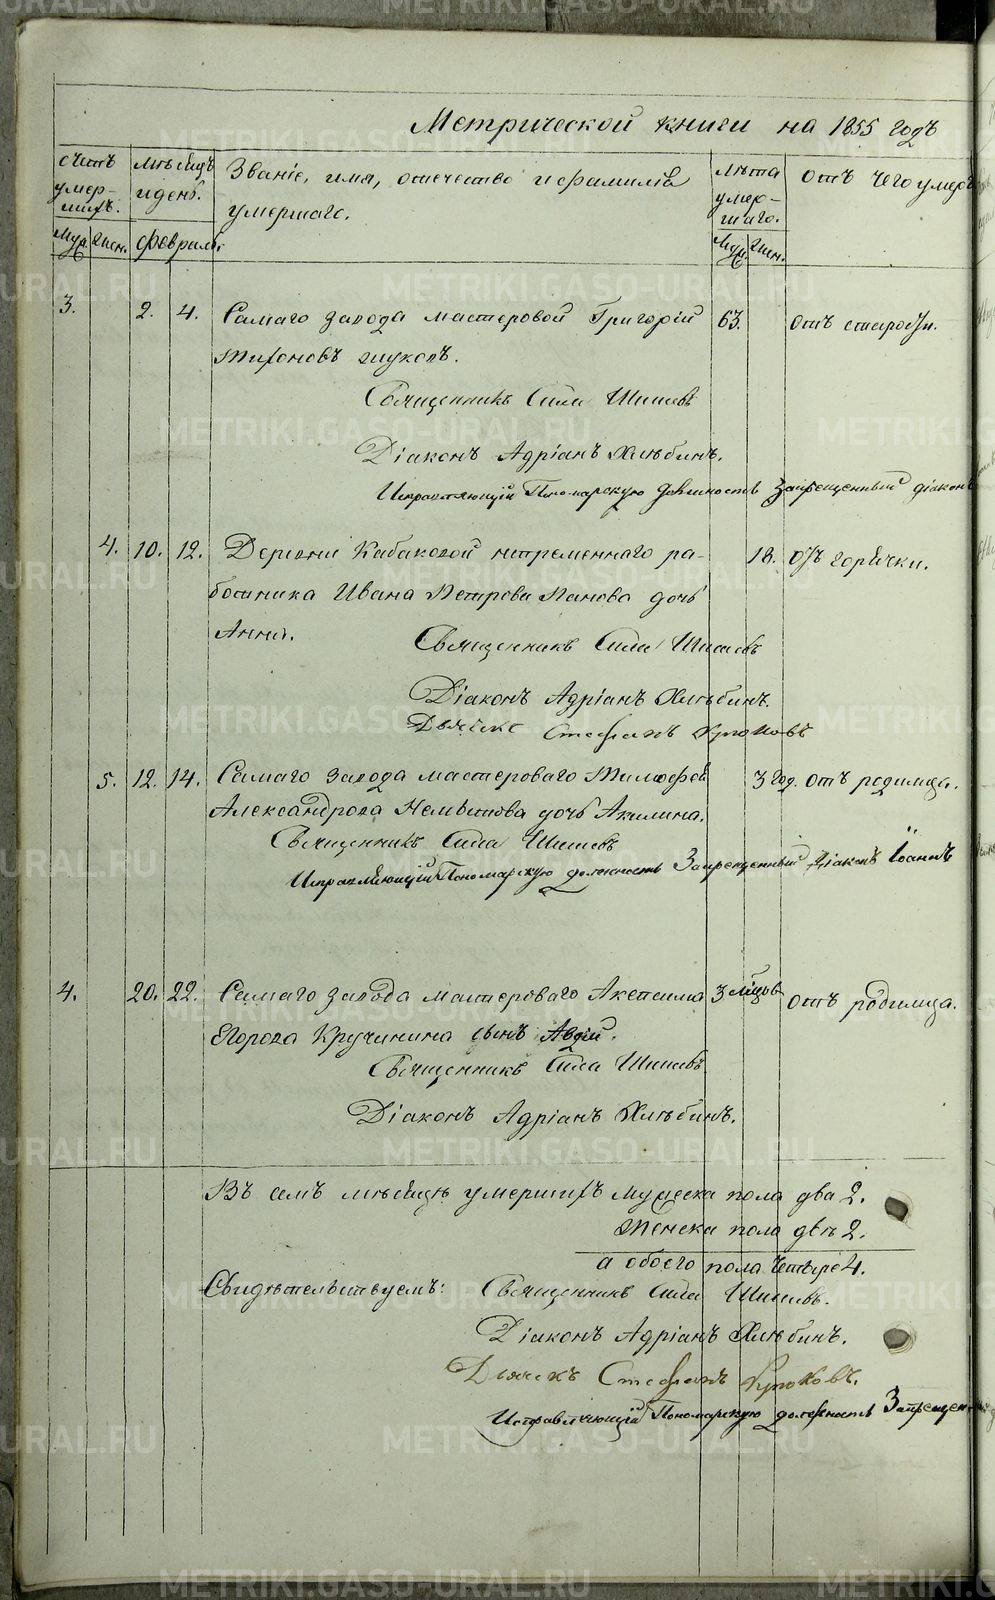 Метрической книги на 1855 годъ
счетъ умер-шихъ.
мѣсяцъ и день.
Званіе, имя, отечество и фамилія умершаго.
лѣта умер-шаго.
отъ чего умеръ
Муж. Жен.
Февраль.
Муж. Жен.
3. 2. 4. Самаго завода мастеровой Григорій 63. отъ старости.
Глуховъ.
Священникъ Сила
Діаконъ Адріанъ Хлѣбинъ.
Исправляющій Пономарскую должность Запрещенный діаконъ
4. 10. 12. Деревни Кабаковой непременнаго ра- 18. отъ горячки.
ботника Ивана Петрова Панова дочь
Анна.
Священникъ Сила
Діаконъ Адріанъ Хлѣбинъ.
Дьячекъ Стефанъ Крюковъ
5. 12. 14. Самаго завода мастероваго 3 год. отъ родимца.
Александрова дочь Акилина.
Священникъ Сила
Исправляющій Пономарскую должность Запрещенный Діаконъ Іоаннъ
4. 20. 22. Самаго завода мастероваго Акепсима 3 мѣсяцов отъ родимца.
Егорова Кручинина сынъ Авдій.
Священникъ Сила
Діаконъ Адріанъ Хлѣбинъ.
Въ семъ мѣсяцѣ умершихъ мужеска пола два 2.
Женска пола двѣ 2.
а обоего пола четыре 4.
Свидѣтельствуемъ: Священникъ Сила
Діаконъ Адріанъ Хлѣбинъ.
Дьячекъ Стефанъ Крюковъ.
Исправляющій Пономарскую должность Запрещен
METRIKI.GASO-URAL.RU